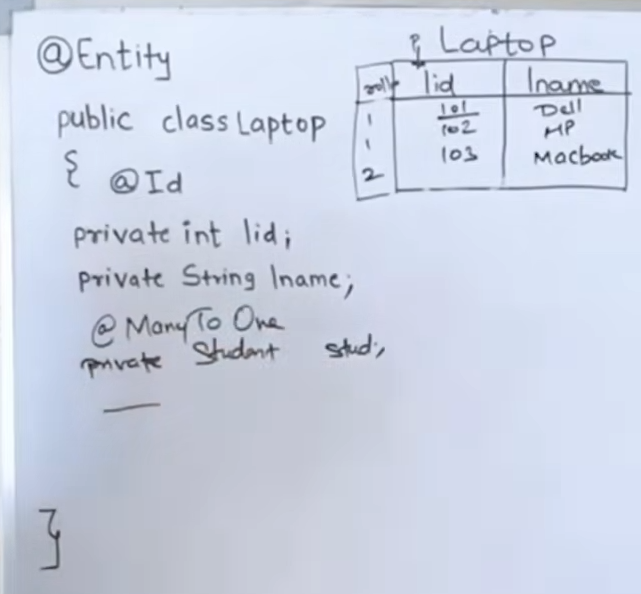 @Entity
public class Laptop
{ @Id
private int lid;
private String lname;
@ManyToOne
private Student stud;
}
Laptop
lid lname
1 101 Dell
1 102 HP
2 103 Macbook